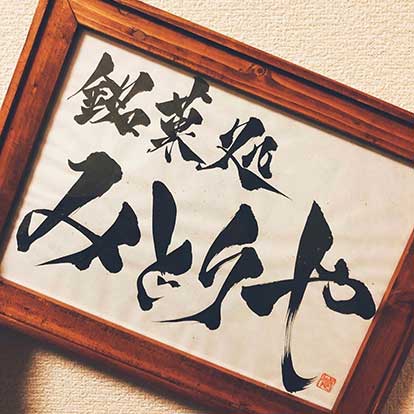 銘菓処
みとうや